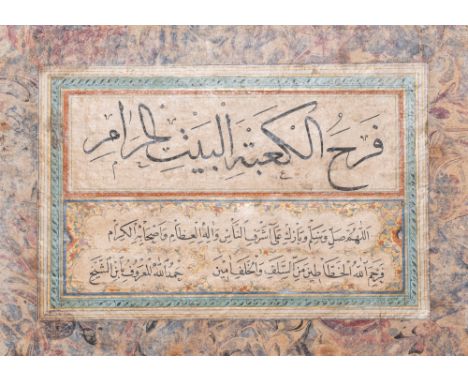 فرح الكعبة البيت الحرام
اللهم صل وسلم وبارك على أشرف الناس وآله العظام وأصحابه الكرام
ورحم الله الخطاطين من السلف والخلف آمين حمد الله المعروف بابن الشيخ